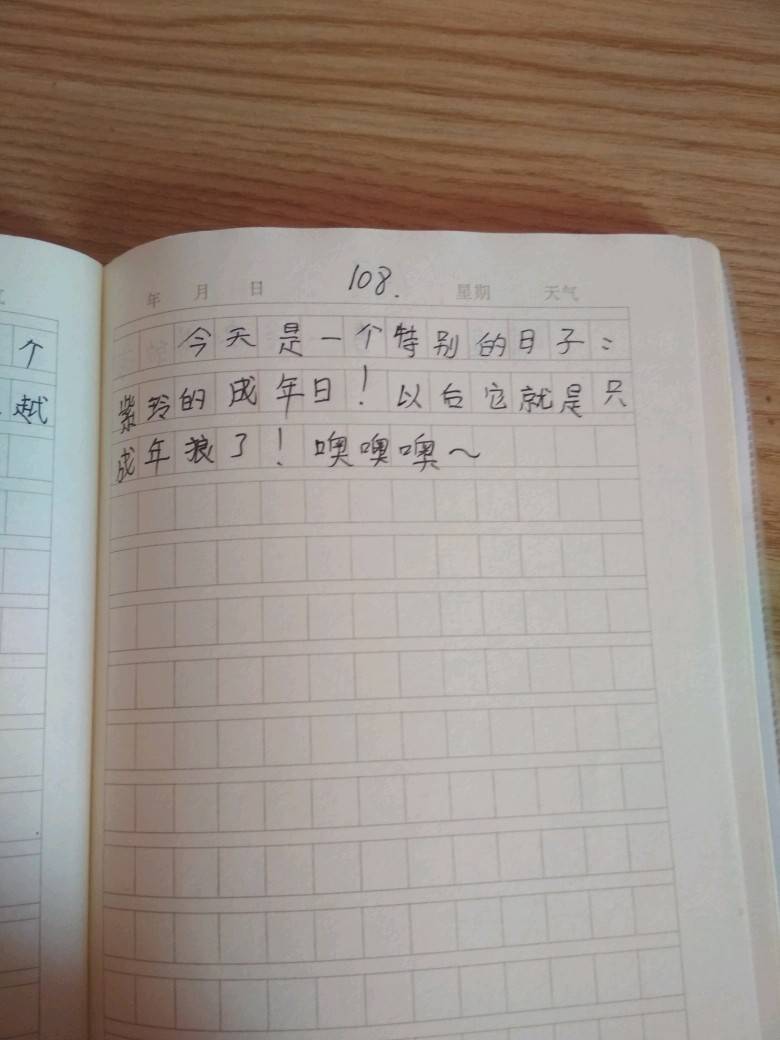 个
越
108.
年 月 日 星期 天气
今天是一个特别的日子：
紫玲的成年日！以后它就是只
成年狼了！噢噢噢～